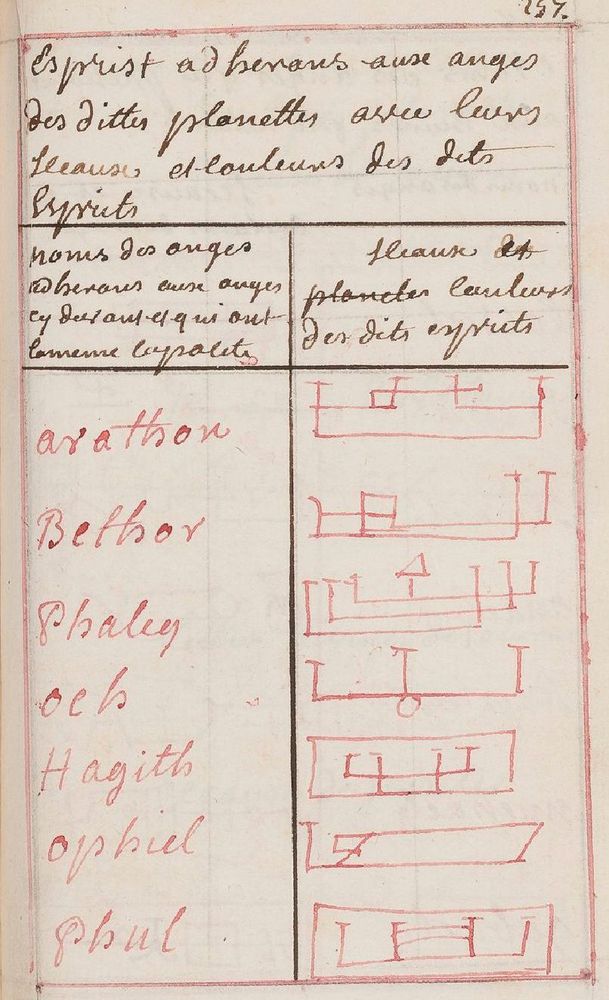 257.
Esprist adherans aux anges
des dittes planettes avec leurs
sceaux et couleurs des dits
Esprits
noms des anges
adherans aux anges
cy devant et qui ont
la meme capasite
sceaux et
planetes couleurs
des dits esprits
arathon
Bethor
Phaleg
och
Hagith
ophiel
Phul